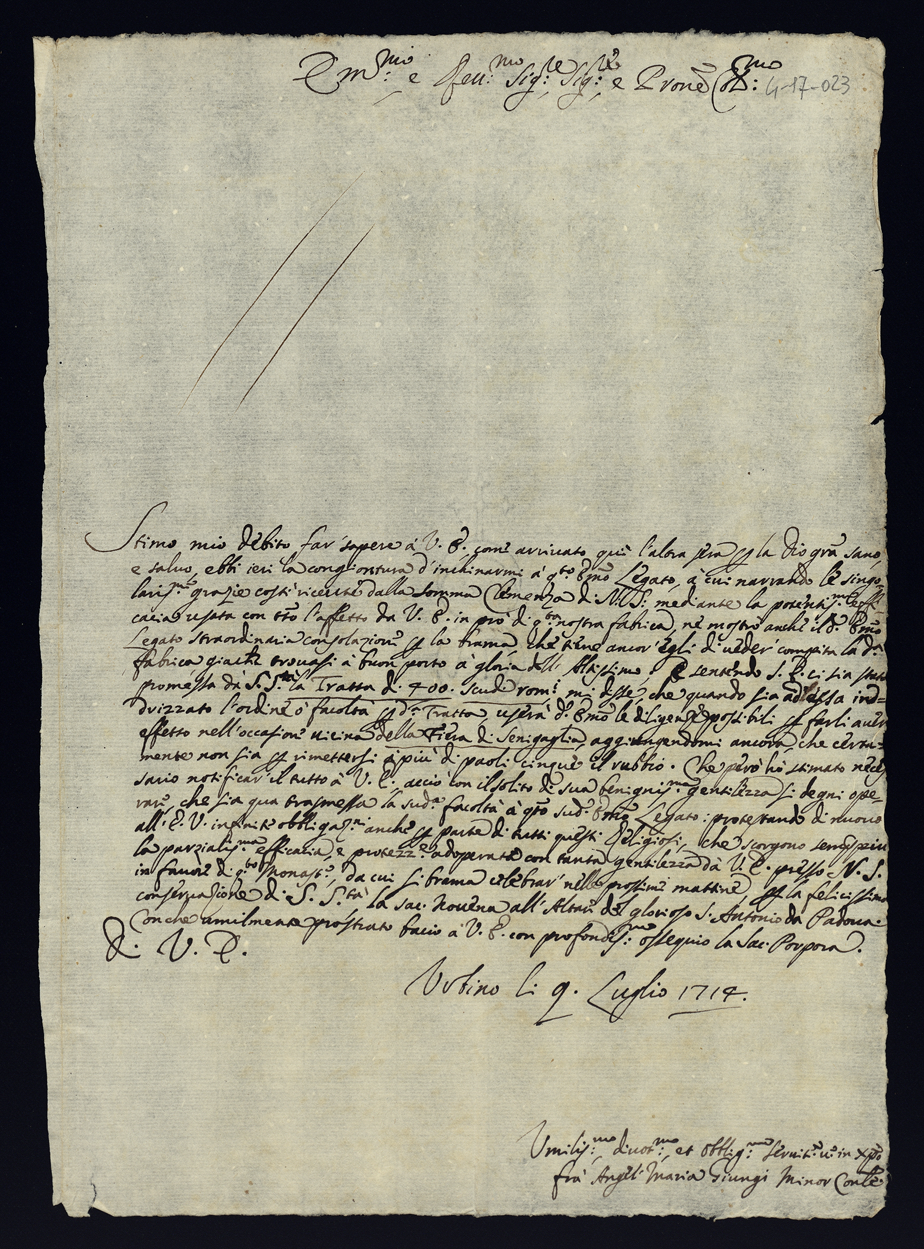 Em.mo e Rev.mo Sig.re Sig.re e Prone Col.mo: 4-17-023
Stimo mio debito far sapere à V. E. come arrivato quì l'altra sera p la Dio gra sano,
e salvo, ebbi ieri la congiontura d'inchinarmi à q.to Emo Legato, à cui narrando le singo-
laris.me grazie costì ricevute dalla somma Clemenza di N. S. mediante la potentis.ma effi-
cacia usata con tto l'affetto da V. E. in prò di q.ta nostra fabrica, ne mostrò anche il d.o Emo
Legato straordinaria consolazione p la brama, che tiene ancor'egli di veder compita la d.a
fabrica giache trovasi à buon porto à gloria dell'Altissimo. E sentendo S. E. ci sia stata
promessa dà S. S.tà la Tratta di 400. scudi rom.i mi disse, che quando sia ad essa ind-
drizzato l'ordine ò facoltà p d.a Tratta, userà d.o Emo le diligenze possibili p farli aver
effetto nell'occasione vicina della Fiera di Senigaglia, aggiungendomi ancora, che certa-
mente non sia p rimettersi à più di paoli cinque il rubbio. Che però hò stimato neces-
sario notificar il tutto à V. E. acciò con il solito di sua benignis.ma gentilezza si degni ope-
rare, che sia qua trasmessa la sud.a facoltà à qto sud.o Emo Legato: protestando di nuovo
all'E. V. infinite obbligaz.ni anche p parte di tutti questi Religiosi, che scorgono sempre più
la parzialis.ma efficacia, e protezz.e adoperate con tanta gentilezza dà V. E. presso N. S.
in favore di q.to Monast.o, da cui si brama celebrar' nelle prossime mattine p la felicissima
conservazione di S. S.tà la Sac: Novena all'Altare del glorioso S. Antonio da Padova.
Con che umilmente prostrato bacio à V. E. con profondis.mo ossequio la Sac: Porpora.
Di V. E.
Urbino li 9. Luglio 1714.
Umilis.mo, divot.mo, et obblig.mo servit.e v.o in Xpo
frà Angelo Maria Giungi Minor Conle